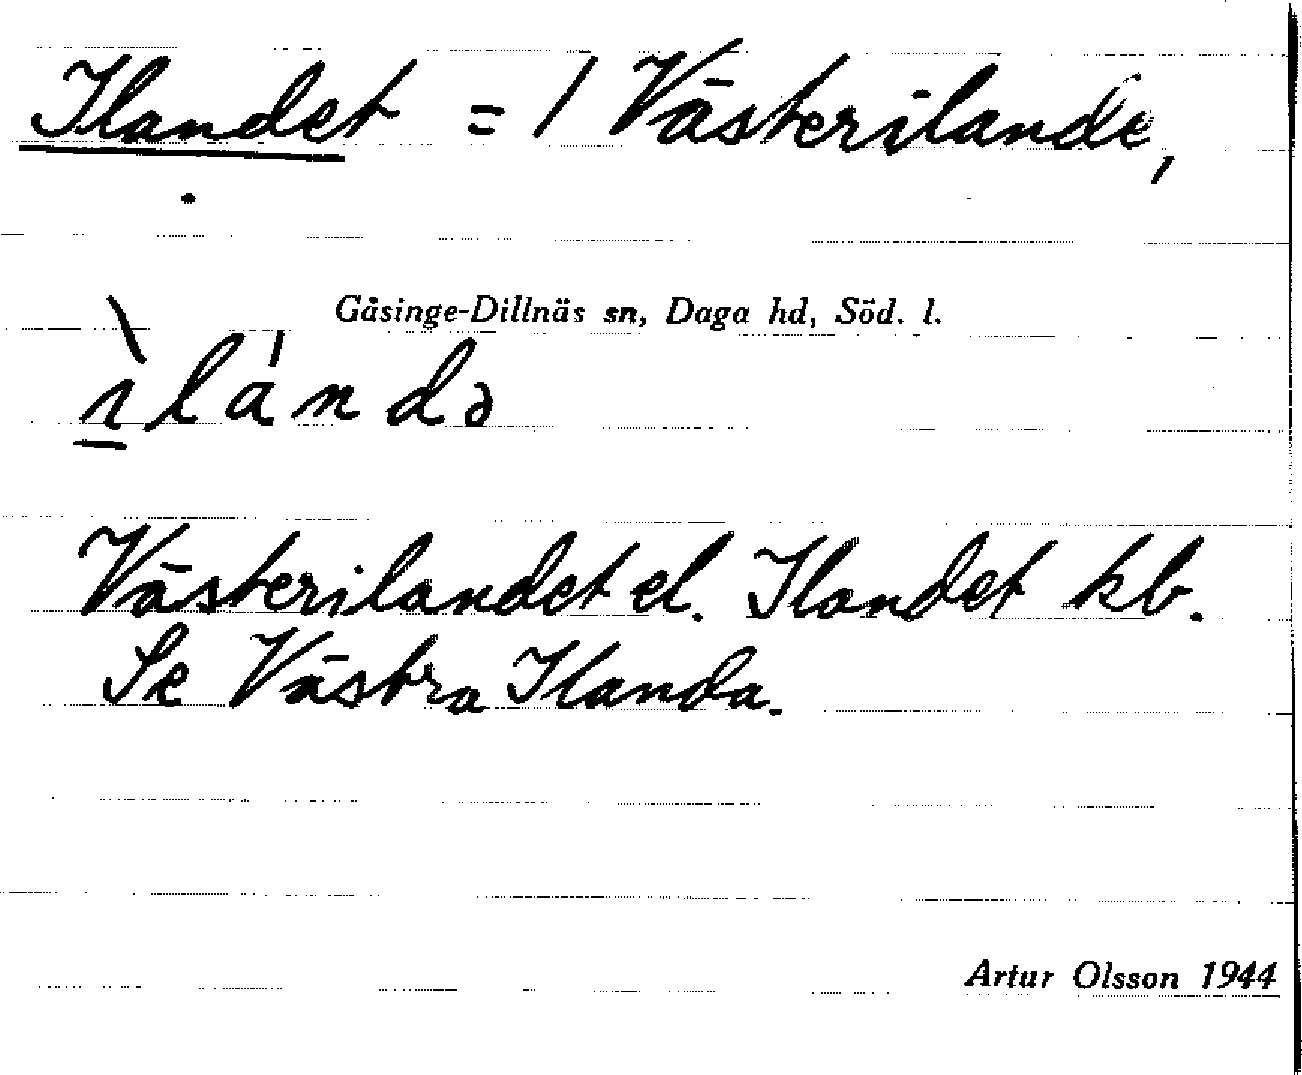 Ilandet = / Västerilande,
Gåsinge-Dillnäs sn, Daga hd, Söd. l.
ı̱̀lándə
Västerilandet el. Ilandet kb.
Se Västra Ilanda.
Artur Olsson 1944